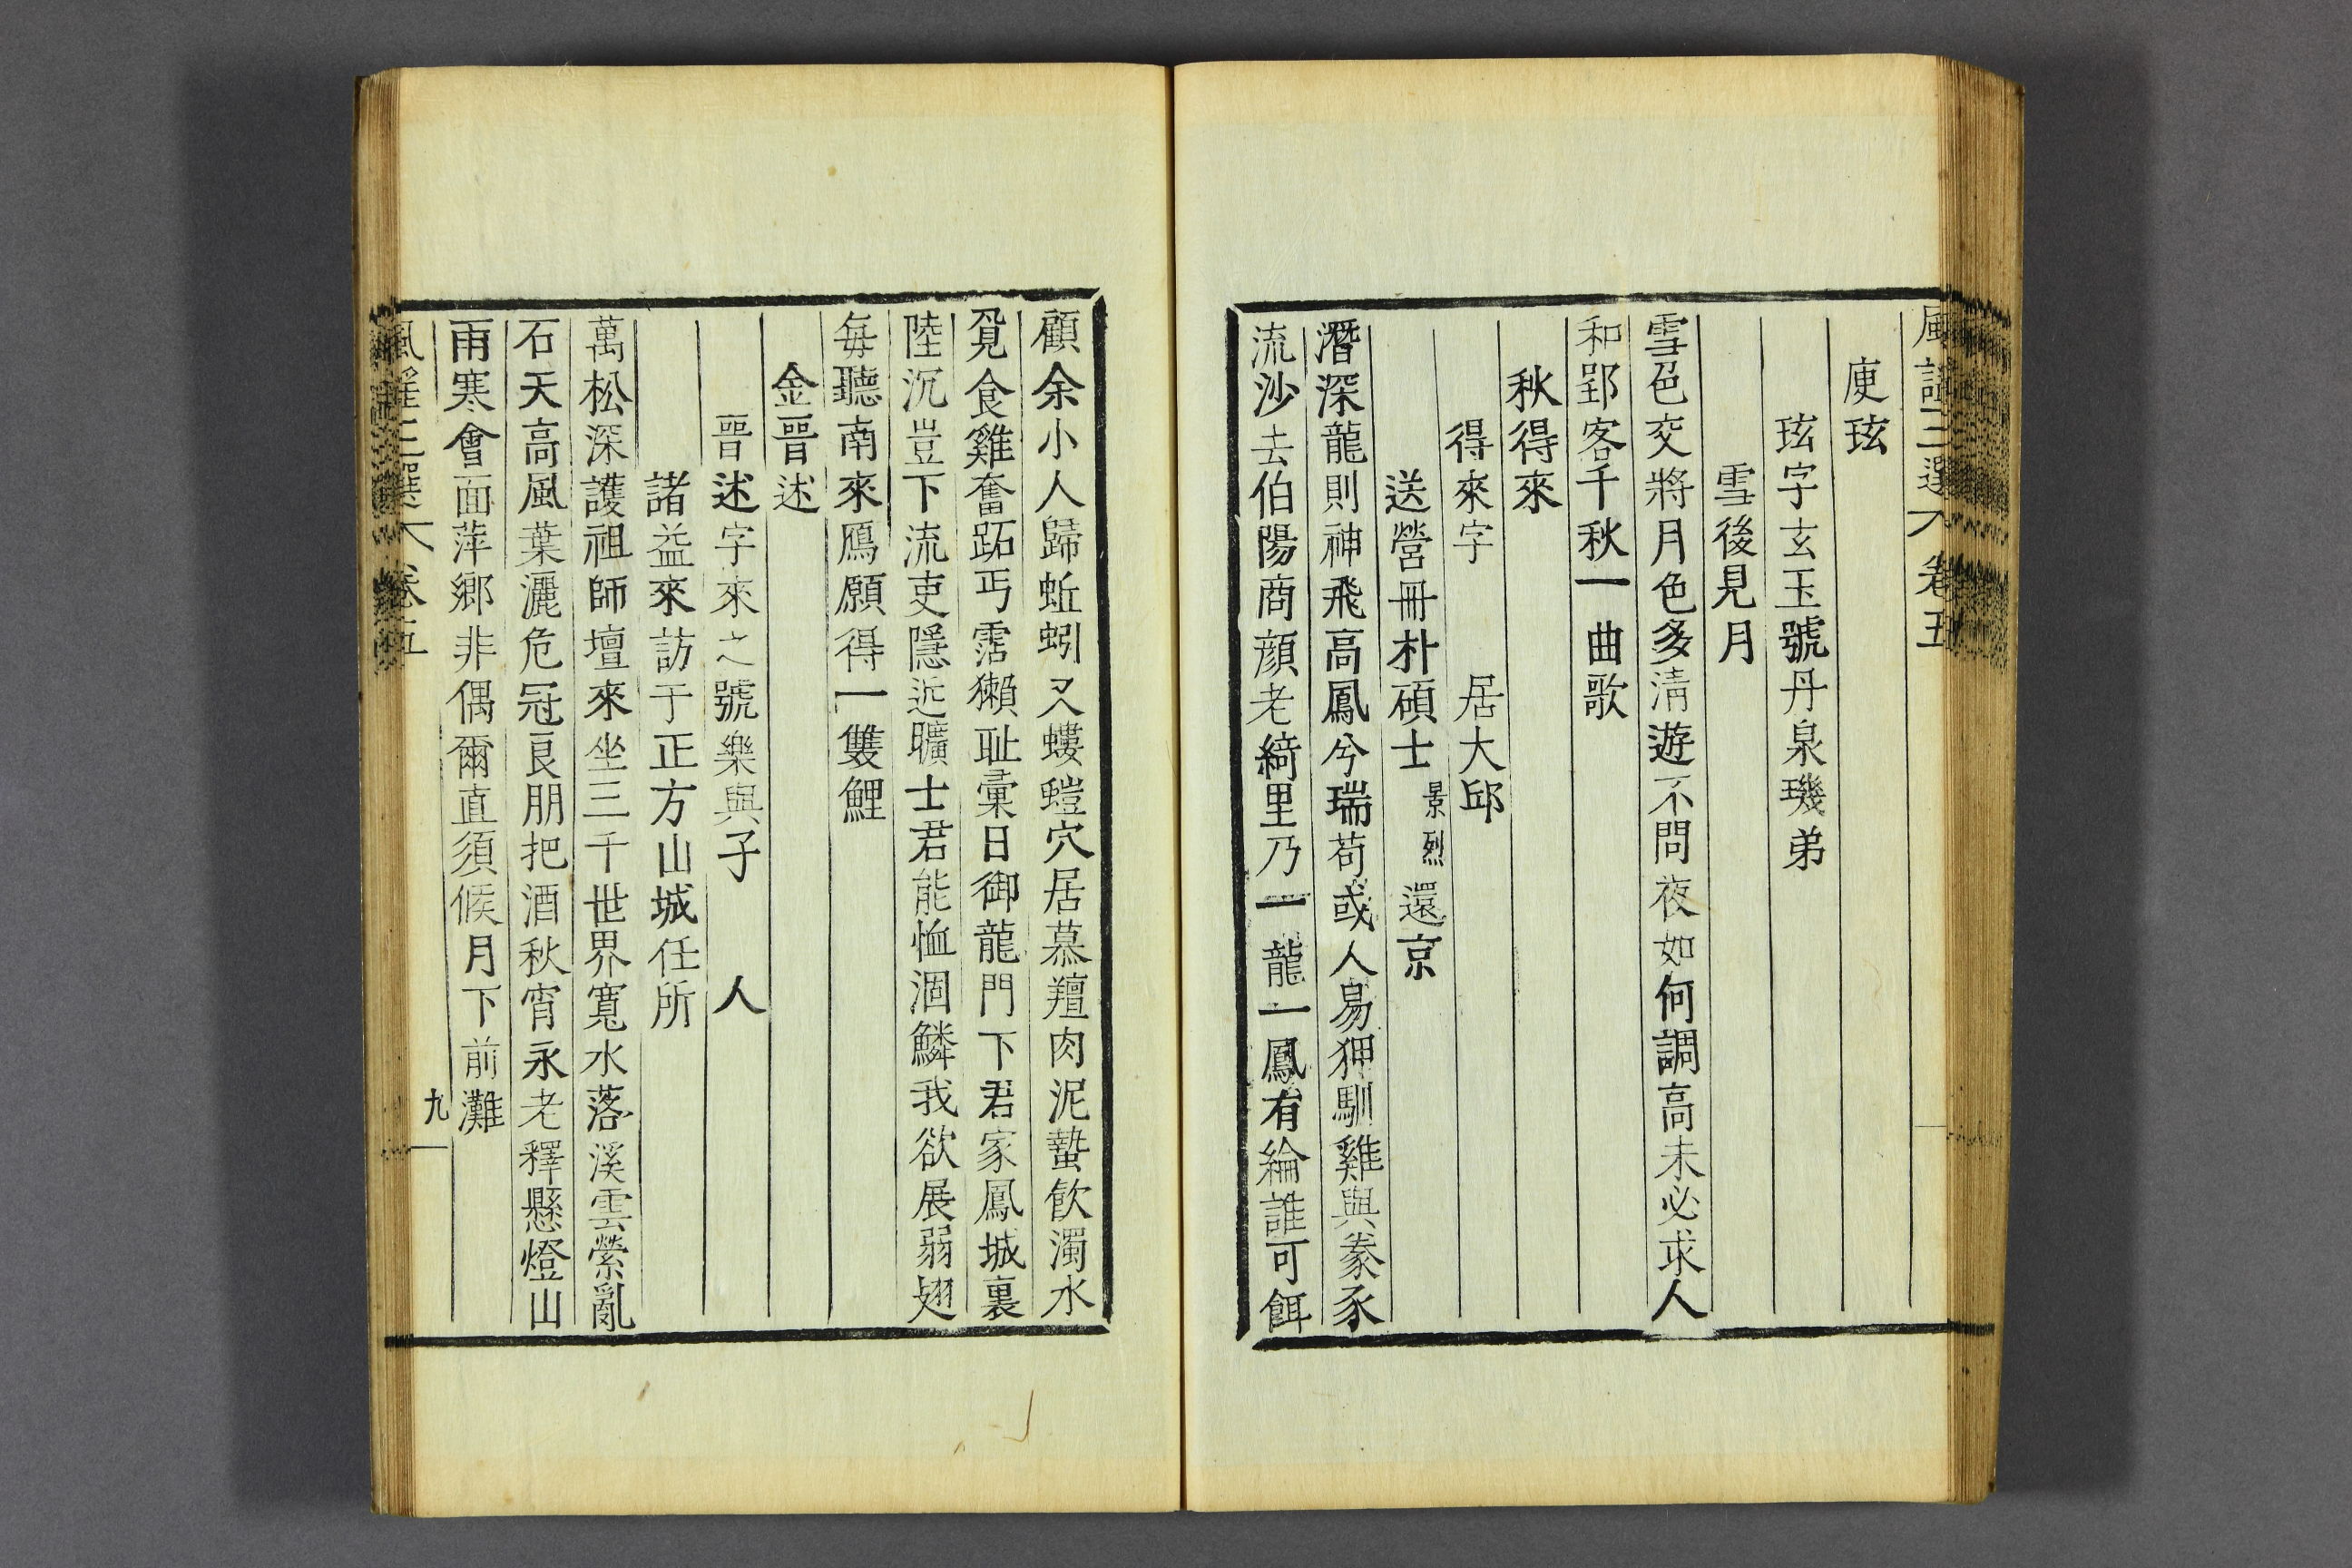 風謠三選 卷五
庾玹
玹字玄玉號丹泉璣弟
雪後見月
雪色交將月色多淸遊不問夜如何調高未必求人
和郢客千秋一曲歌
秋得來
得來字 居大邱
送營冊朴碩士景烈還京
潛深龍則神飛高鳳兮瑞苟或人昜狎馴雞與豢豕
流沙去伯陽商顔老綺里乃一龍一鳳有綸誰可餌
顧余小人歸蚯蚓又螻螘穴居慕羶肉泥蟄飮濁水
覓食雞奮跖丐霑獺耻彙日御龍門下君家鳳城裏
陸沉豈下流吏隱近曠士君能恤涸鱗我欲展弱翅
每聽南來鴈願得一雙鯉
金晉述
晉述字來之號樂與子 人
諸益來訪于正方山城任所
萬松深護祖師壇來坐三千世界寬水落溪雲縈亂
石天高風葉灑危冠良朋把酒秋宵永老釋懸燈山
雨寒會面萍鄕非偶爾直須候月下前灘
風謠三選 卷五 九